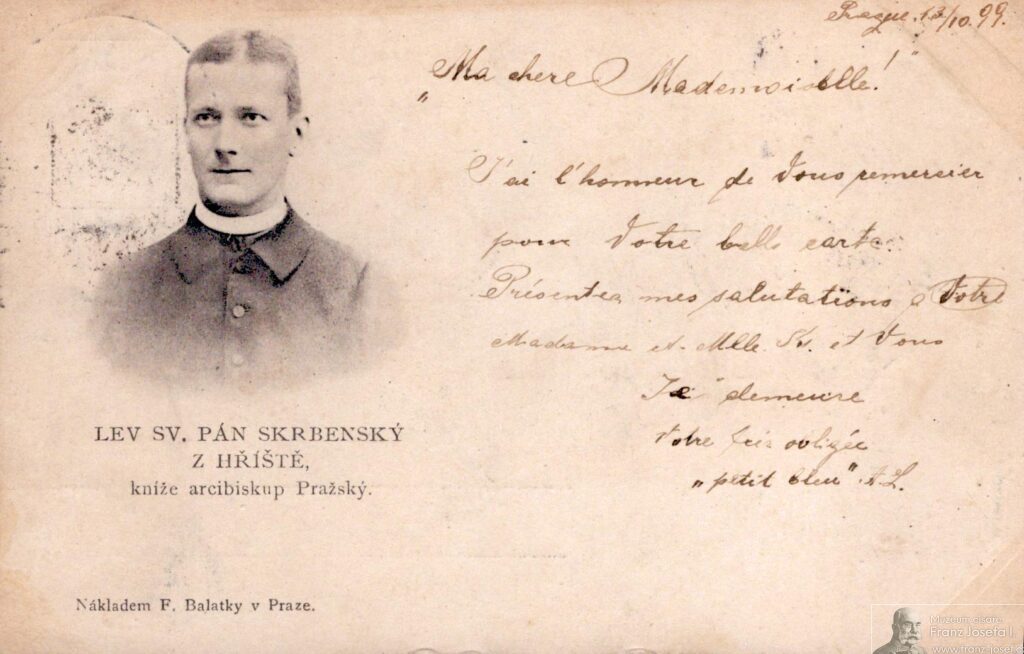 Prague 13/10.99.
„Ma chere Mademoiselle!"
J'ai l'honneur de Vous remercier
pour Votre belle carte.
Présentea mes salutations a Votre
Madame et Mlle. et Vous
Je demeure
Votre obligée
„petit bleu" A.L.
LEV SV. PÁN SKRBENSKÝ
Z HŘÍŠTĚ,
kníže arcibiskup Pražský.
Nákladem F. Balatky v Praze.
Muzeum císaře
Franz Josefa I.
www.franz-josef.c